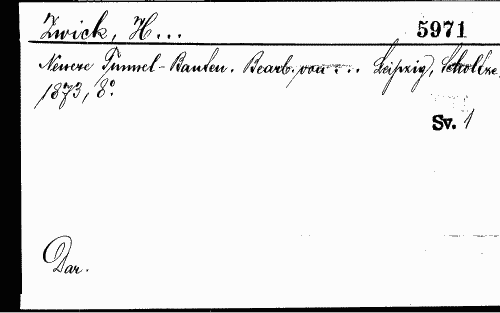 Zwick, H...
5971
Neuere Tunnel-Bauten. Bearb. von ... Leipzig, Scholtze,
1873, 8°.
Sv. 1
Dar.